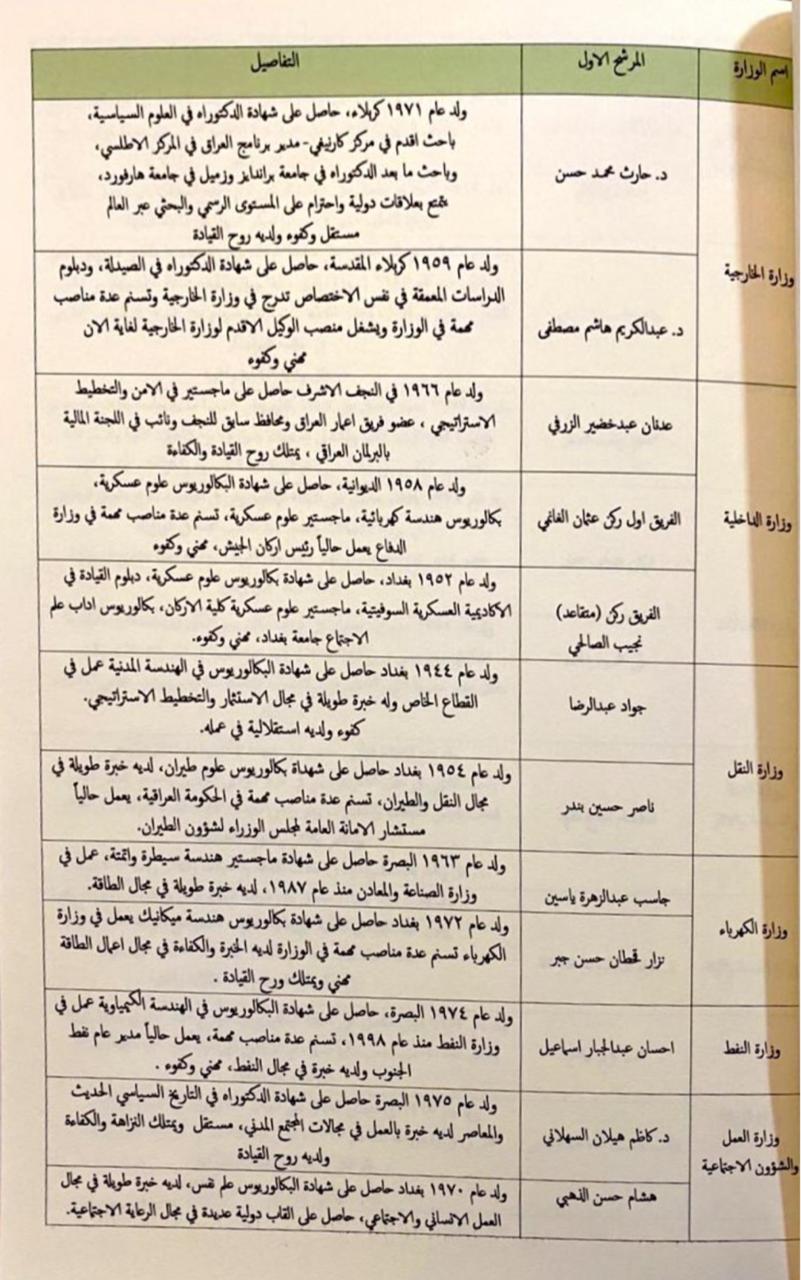 اسم الوزارة
المرشح الاول
التفاصيل
وزارة الخارجية
د. حارث محمد حسن
ولد عام ١٩٧١ كربلاء، حاصل على شهادة الدكتوراه في العلوم السياسية،
باحث اقدم في مركز كارنيغي- مدير برنامج العراق في المركز الاطلسي،
وباحث ما بعد الدكتوراه في جامعة براندايز وزميل في جامعة هارفورد،
يتمتع بعلاقات دولية واحترام على المستوى الرسمي والبحثي عبر العالم
مستقل وكفوء ولديه روح القيادة
د. عبدالكريم هاشم مصطفى
ولد عام ١٩٥٩ كربلاء المقدسة، حاصل على شهادة الدكتوراه في الصيدلة، ودبلوم
الدراسات المعمقة في نفس الاختصاص تدرج في وزارة الخارجية وتسنم عدة مناصب
مهمة في الوزارة ويشغل منصب الوكيل الاقدم لوزارة الخارجية لغاية الان
مهني وكفوء
وزارة الداخلية
عدنان عبدخضير الزرفي
ولد عام ١٩٦٦ في النجف الاشرف حاصل على ماجستير في الامن والتخطيط
الاستراتيجي ، عضو فريق اعمار العراق ومحافظ سابق للنجف ونائب في اللجنة المالية
بالبرلمان العراقي ، يمتلك روح القيادة والكفاءة
الفريق اول ركن عثمان الغانمي
ولد عام ١٩٥٨ الديوانية، حاصل على شهادة البكالوريوس علوم عسكرية،
بكالوريوس هندسة كهربائية، ماجستير علوم عسكرية، تسنم عدة مناصب مهمة في وزارة
الدفاع يعمل حالياً رئيس اركان الجيش، مهني وكفوء
الفريق ركن (متقاعد)
نجيب الصالحي
ولد عام ١٩٥٢ بغداد، حاصل على شهادة بكالوريوس علوم عسكرية، دبلوم القيادة في
الاكاديمية العسكرية السوفيتية، ماجستير علوم عسكرية كلية الاركان، بكالوريوس اداب علم
الاجتماع جامعة بغداد، مهني وكفوء.
وزارة النقل
جواد عبدالرضا
ولد عام ١٩٤٤ بغداد حاصل على شهادة البكالوريوس في الهندسة المدنية عمل في
القطاع الخاص وله خبرة طويلة في مجال الاستثمار والتخطيط الاستراتيجي.
كفوء ولديه استقلالية في عمله.
ناصر حسين بندر
ولد عام ١٩٥٤ بغداد حاصل على شهداة بكالوريوس علوم طيران، لديه خبرة طويلة في
مجال النقل والطيران، تسنم عدة مناصب مهمة في الحكومة العراقية، يعمل حالياً
مستشار الامانة العامة لمجلس الوزراء لشؤون الطيران.
وزارة الكهرباء
جاسب عبدالزهرة ياسين
ولد عام ١٩٦٣ البصرة حاصل على شهادة ماجستير هندسة سيطرة واتمتة، عمل في
وزارة الصناعة والمعادن منذ عام ١٩٨٧، لديه خبرة طويلة في مجال الطاقة.
نزار قحطان حسن جبر
ولد عام ١٩٧٢ بغداد حاصل على شهادة بكالوريوس هندسة ميكانيك يعمل في وزارة
الكهرباء تسنم عدة مناصب مهمة في الوزارة لديه الخبرة والكفاءة في مجال اعمال الطاقة
مهني ويمتلك ورح القيادة .
وزارة النفط
احسان عبدالجبار اسماعيل
ولد عام ١٩٧٤ البصرة، حاصل على شهادة البكالوريوس في الهندسة الكيمياوية عمل في
وزارة النفط منذ عام ١٩٩٨، تسنم عدة مناصب مهمة، يعمل حالياً مدير عام نفط
الجنوب ولديه خبرة في مجال النفط، مهني وكفوء .
وزارة العمل
والشؤون الاجتماعية
د.كاظم هيلان السهلاني
ولد عام ١٩٧٥ البصرة حاصل على شهادة الدكتوراه في التاريخ السياسي الحديث
والمعاصر لديه خبرة بالعمل في مجالات المجتمع المدني، مستقل ويمتلك النزاهة والكفاءة
ولديه روح القيادة
هشام حسن الذهبي
ولد عام ١٩٧٠ بغداد حاصل على شهادة البكالوريوس علم نفس، لديه خبرة طويلة في مجال
العمل الانساني والاجتماعي، حاصل على القاب دولية عديدة في مجال الرعاية الاجتماعية.